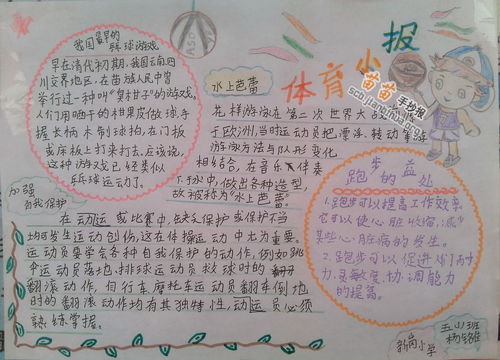 体育小报
我国最早的
乒球游戏
早在清代初期,我国云南四
川交界地区,在苗族人民中曾
举行过一种叫“臭柑子”的游戏。
人们用晒干的柑果皮做球,手
握长柄木制球拍,在门板
或床板上打来打去。应该说,
这种游戏已轻类似
乒乓球运动了。
水上芭蕾
花样游泳在第二次世界大战
于欧洲,当时运动员把漂浮、转动等游
游泳方法与队形变化
相结合,在音乐伴奏
下于水中,做出各种造型
故被称为“水上芭蕾”。
加强
自我保护
在运动或比赛中,缺欠保护或保护不当
均可发生运动创伤,这在体操运动中尤为重要。
运动员要学会各种自我保护的动作,例如跳
伞运动员落地、排球运动员救球时的
翻滚动作,自行车摩托车运动员翻车倒地
时的翻滚动作均有其独特性,动运员必须
熟练掌握。
跑步的益处
1.跑步可以提高工作效率,
它可以使心脏收缩,减
某些心脏病的发生。
2.跑步可以促进人们耐
力、灵敏度、协调能力
的提高。
五(1)班
新岗小学
苗苗手抄报